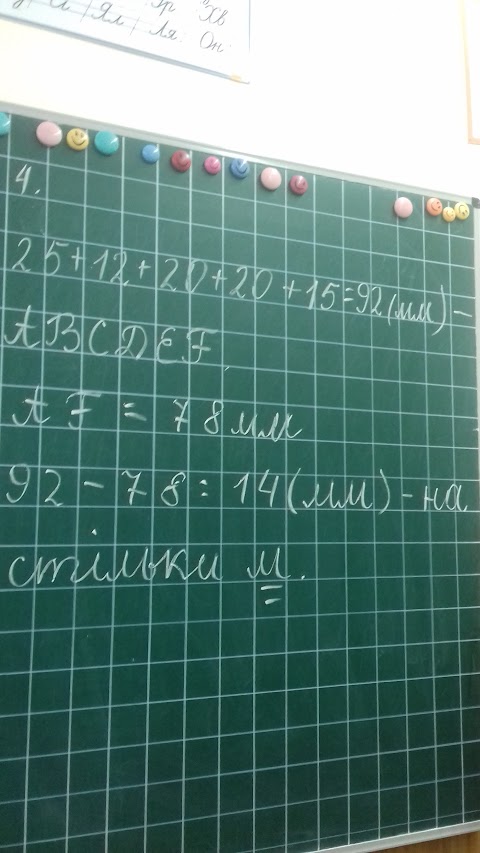 Хв
Ял Ля Он
4.
25+12+20+20+15=92(мм)-
ABCDEF.
AF = 78мм
92-78=14(мм)-на
стільки м.